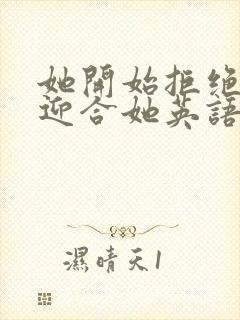 她開始拒絕
迎合她英語
濕晴天1